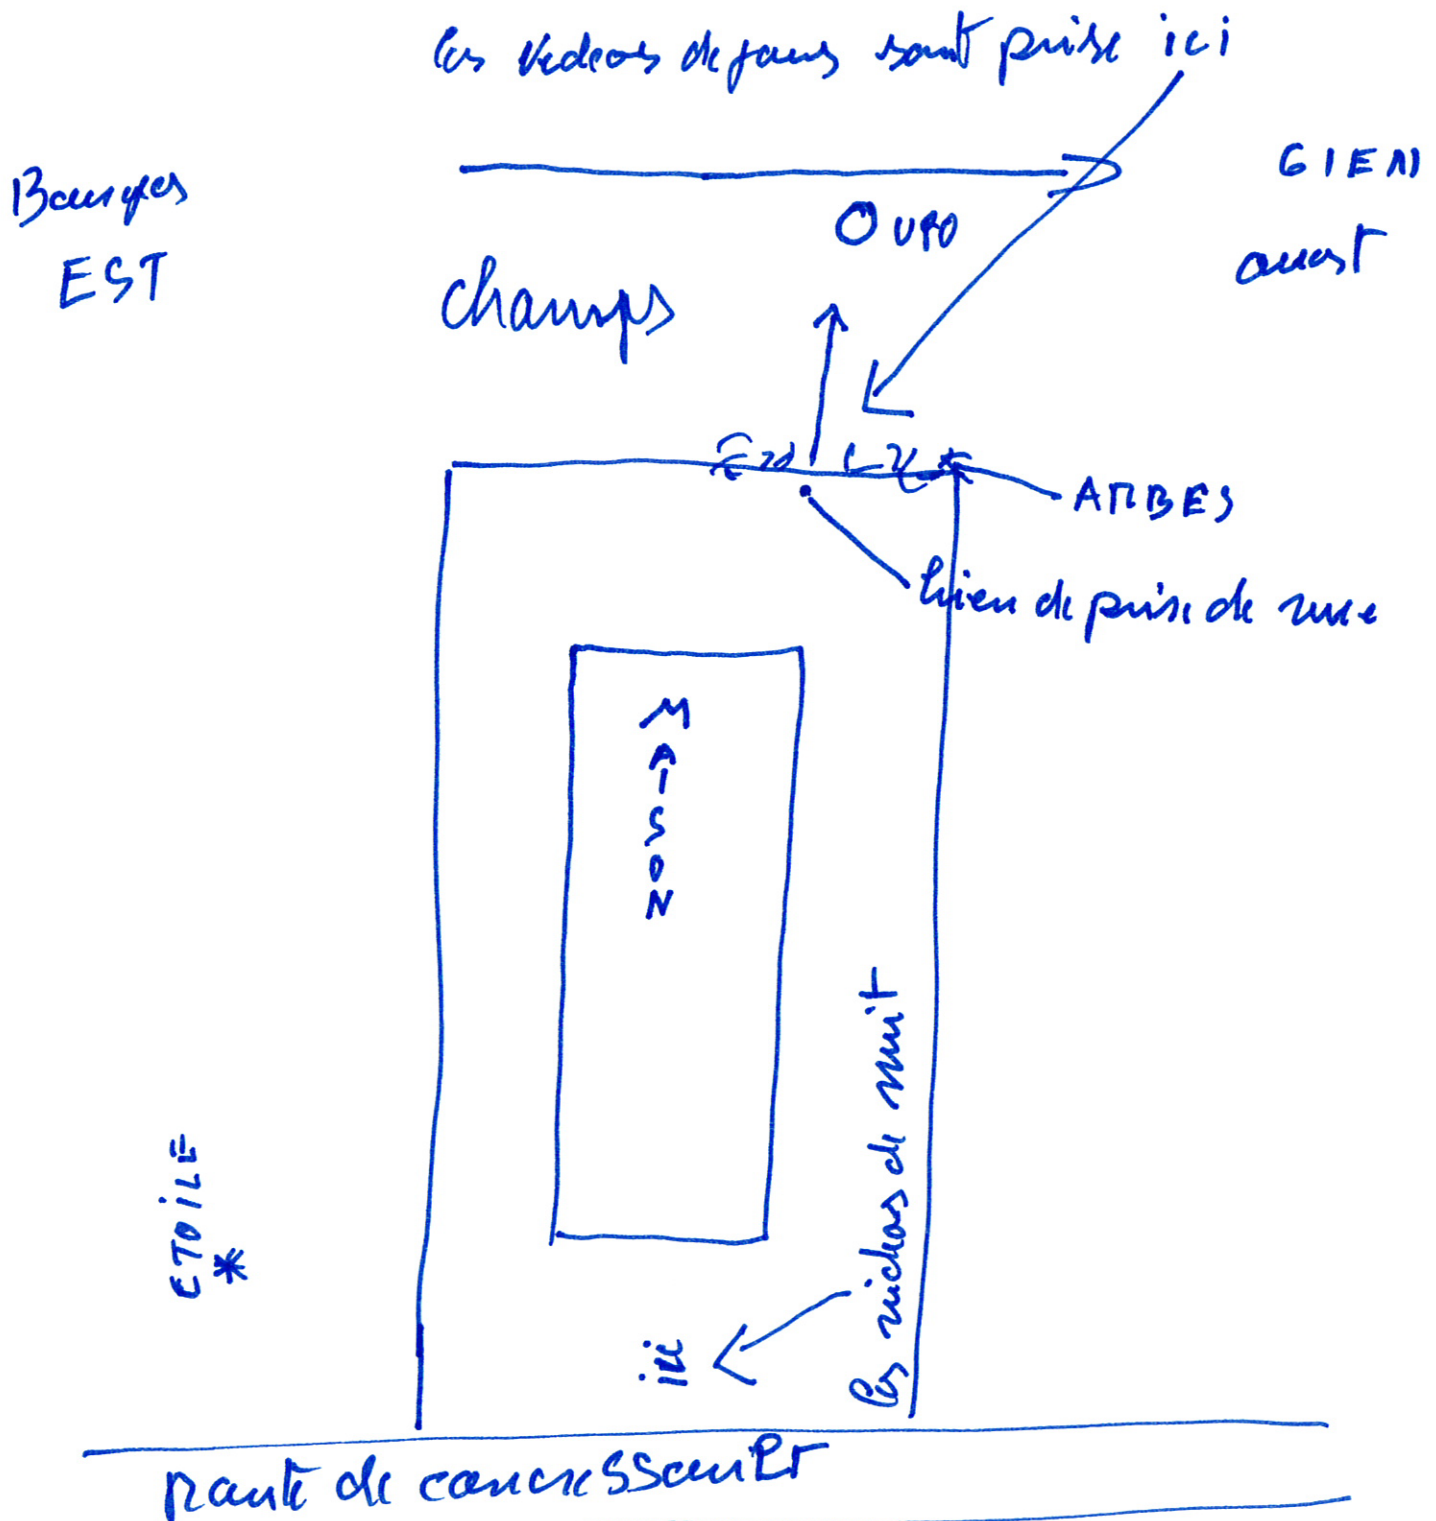 les videos de jours sont prise ici
Bourges
EST
GIEN
ouest
O UFO
champs
ARBES
lieu de prise de vue
MAISON
ETOILE
*
les videos de nuit
ici
route de concressault